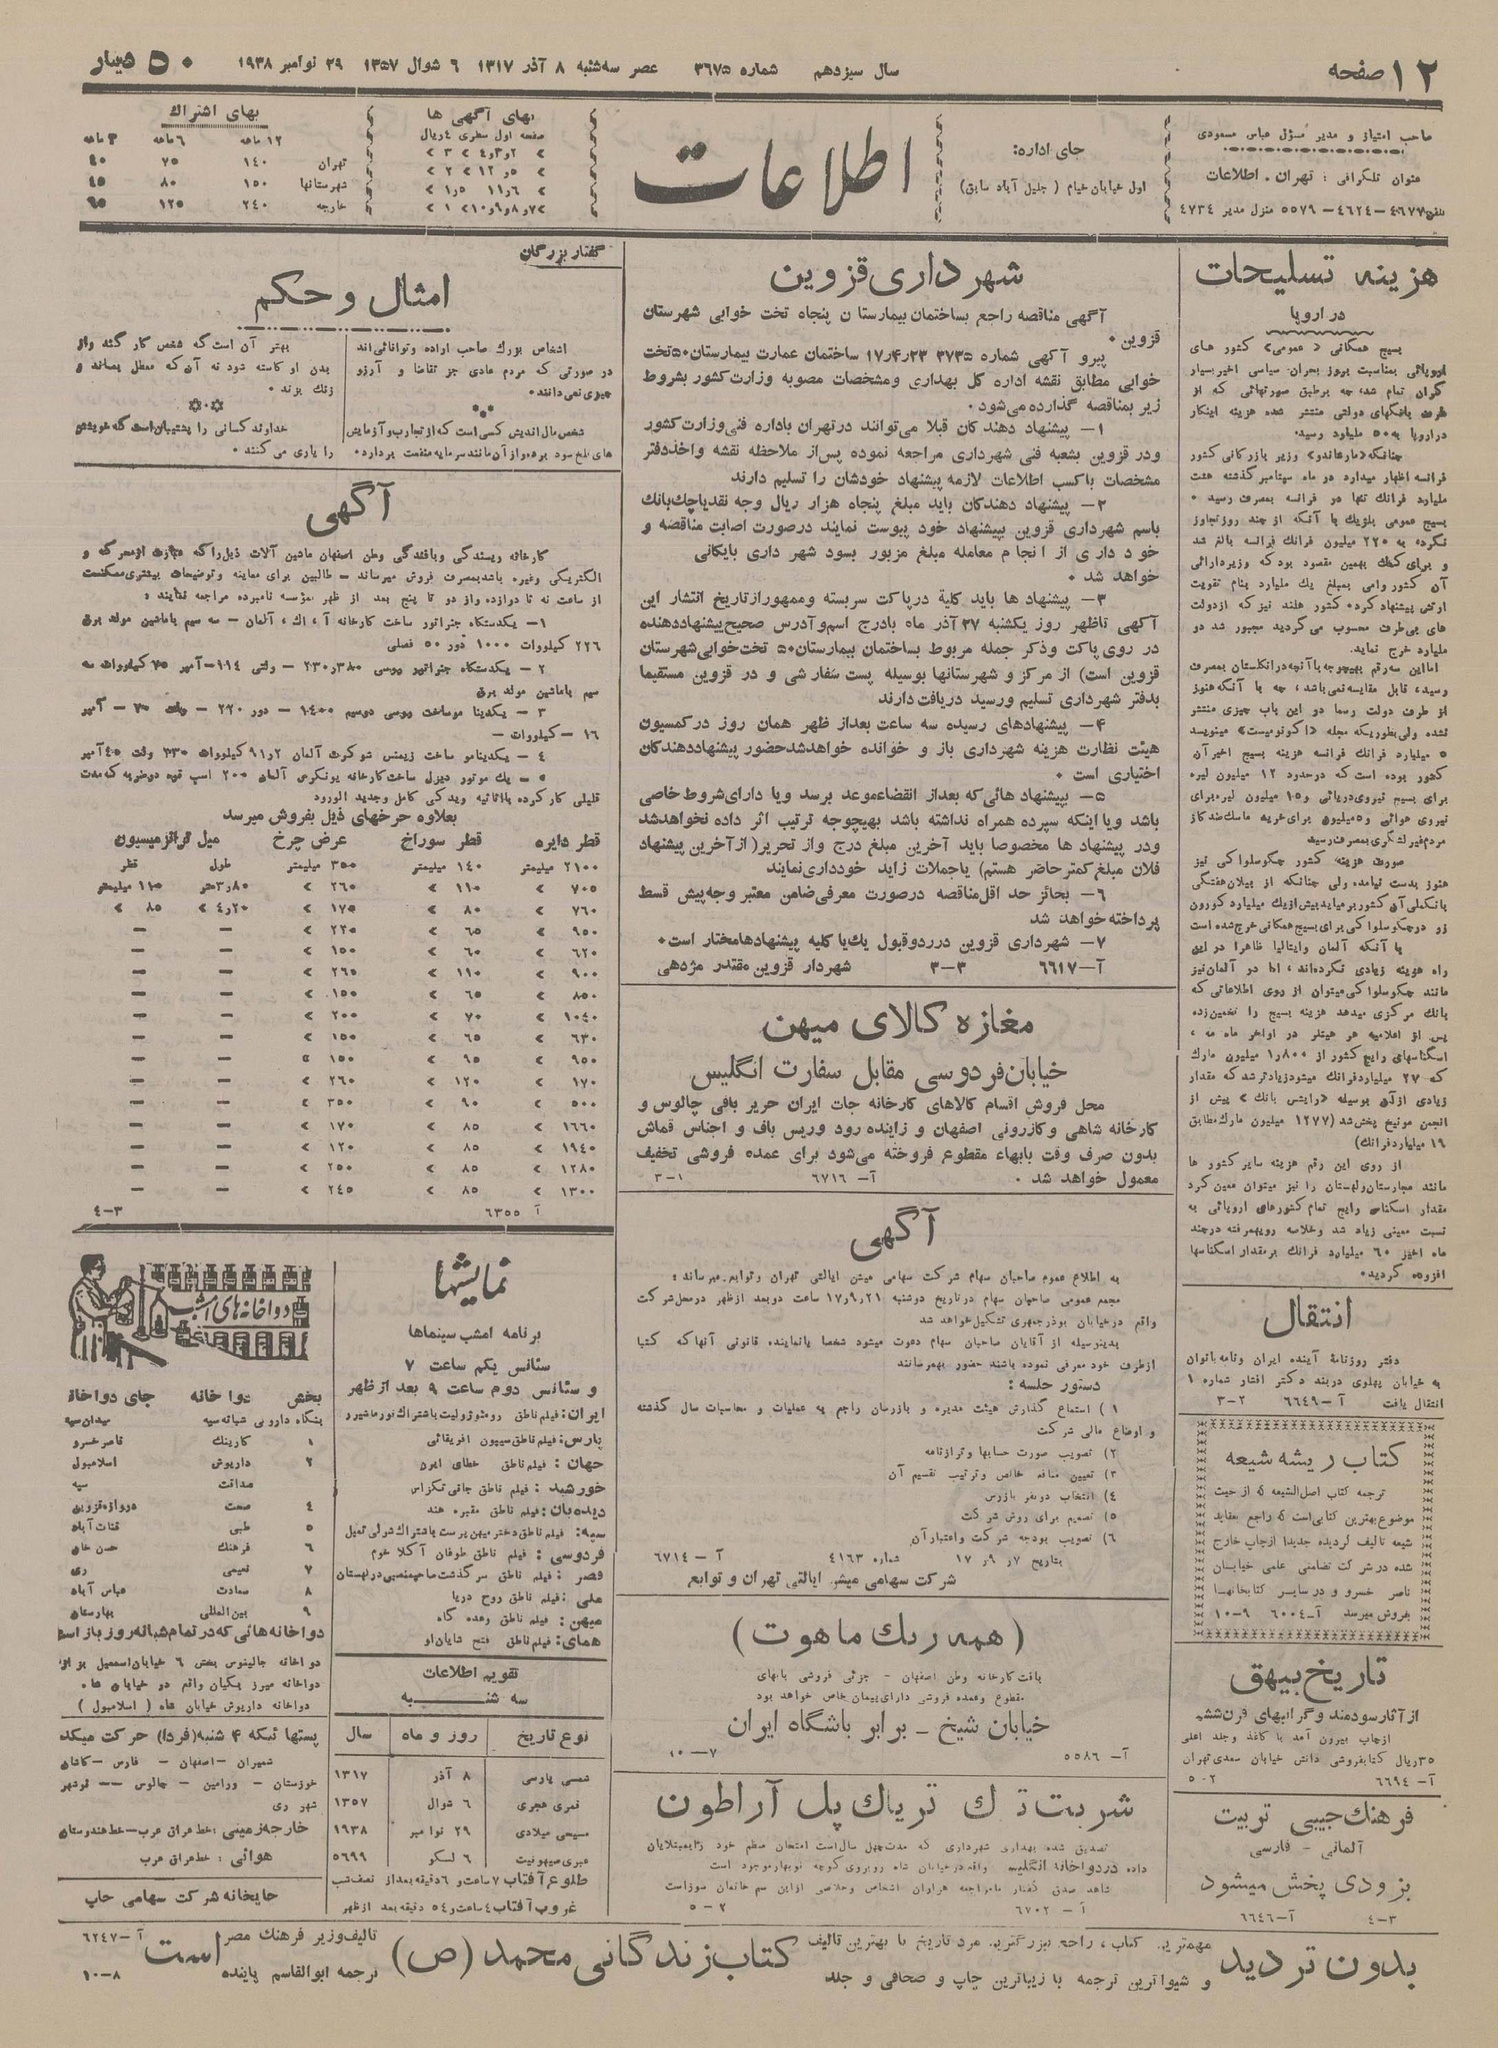 ۱۲ صفحه
سال سیزدهم شماره ۳۶۷۵ عصر سه‌شنبه ۸ آذر ۱۳۱۷ ۶ شوال ۱۳۵۷ ۲۹ نوامبر ۱۹۳۸
۵۰ دینار
صاحب امتیاز و مدیر مسؤل عباس مسعودی
عنوان تلگرافی : تهران . اطلاعات
تلفن ۴۶۷۷ – ۴۶۲۴ – ۵۵۷۹ منزل مدیر ۴۷۳۴
جای اداره:
اول خیابان خیام ( جلیل آباد سابق)
اطلاعات
بهای آگهی ها
صفحه اول سطری ٤ ریال
بهای اشتراك
۱۲ ماهه ۶ ماهه ۳ ماهه
تهران ۱۴۰ ۷۵ ۴۰
شهرستانها ۱۵۰ ۸۰ ۴۵
خارجه ۲۴۰ ۱۲۵ ۶۵
هزینه تسلیحات
در اروپا
بسیج همگانی «عمومی» کشور های
اروپائی بمناسبت بروز بحران سیاسی اخیر بسیار
گران تمام شد، چه برطبق صورتهائی که از
طرف بانکهای دولتی منتشر شده هزینه اینکار
در اروپا به ۵۰ ملیارد رسید.
چنانکه «مارشاندو» وزیر بازرگانی کشور
فرانسه اظهار میدارد در ماه سپتامبر گذشته هشت
ملیارد فرانك تنها در فرانسه بمصرف رسید .
بسیج عمومی بلژیك با آنکه از چند روز تجاوز
نکرد، به ۲۲۰ میلیون فرانك فرانسه بالغ شد
و برای کمك بهمین مقصود بود که وزیر دارائی
آن کشور وامی بمبلغ یك ملیارد بنام تقویت
ارتش پیشنهاد کرد. کشور هلند نیز که از دولت
های بی‌طرف محسوب می گردید مجبور شد دو
ملیارد خرج نماید.
اما این سه رقم بهیچوجه با آنچه در انگلستان بمصرف
رسید، قابل مقایسه نمی‌باشد، چه با آنکه هنوز
از طرف دولت رسماً در این باب چیزی منتشر
نشده ولی بطوریکه مجله «اکونومیست» مینویسد
۵ میلیارد فرانك فرانسه هزینه بسیج اخیر آن
کشور بوده است که در حدود ۱۲ میلیون لیره
برای بسیج نیروی دریائی و ۱۵ میلیون لیره برای
نیروی هوائی و ۵ میلیون برای خرید ماسك ضد گاز
مردم غیر لشگری بمصرف رسید
صورت هزینه کشور چکوسلواکی نیز
هنوز بدست نیامده، ولی چنانکه از بیلان هفتگی
بانك ملی آن کشور بر میآید بیش از یك میلیارد کورون
زر در چکوسلواکی برای بسیج همگانی خرج شده است
با آنکه آلمان و ایتالیا ظاهراً در این
راه هزینه زیادی نکرده‌اند، اما در آلمان نیز
مانند چکوسلواکی میتوان از روی اطلاعاتی که
بانك مرکزی میدهد هزینه بسیج را تخمین زد،
پس از اعلامیه هر هیتلر در اواخر ماه مه ،
اسکناسهای رایج کشور از ۱٫۸۰۰ میلیون مارك
که ۲۷ میلیارد فرانك میشود زیادتر شد که مقدار
زیادی از آن بوسیله «رایش بانك» پیش از
انجمن مونیخ پخش شد (۱۲۷۷ میلیون مارك مطابق
۱۹ میلیارد فرانك)
از روی این رقم هزینه سایر کشور ها
مانند مجارستان و لهستان را نیز میتوان معین کرد
مقدار اسکناس رایج تمام کشورهای اروپائی به
نسبت معینی زیاد شد و خلاصه رویهمرفته در چند
ماه اخیر ۶۰ میلیارد فرانك بر مقدار اسکناسها
افزوده گردید.
انتقال
دفتر روزنامهٔ آینده ایران و نامه بانوان
به خیابان پهلوی دربند دکتر افشار شماره ۱
انتقال یافت آ – ۶۶۴۹ ۳-۲
کتاب ریشه شیعه
ترجمه کتاب اصل الشیعه که از حیث
موضوع بهترین کتابی است که راجع بعقاید
شیعه تألیف گردیده جدیداً از چاپ خارج
شده در شرکت تضامنی علمی خیابان
ناصر خسرو و در سایر کتابخانها
بفروش میرسد آ-۶۰۰۴ ۹-۱۰
تاریخ بیهق
از آثار سودمند و گرانبهای قرن ششم
از چاپ بیرون آمد با کاغذ و جلد اعلی
۳۵ ریال کتابفروشی دانش خیابان سعدی تهران
آ- ۶۶۹۴ ۲-۵
فرهنگ جیبی تربیت
آلمانی – فارسی
بزودی پخش میشود
آ-۶۶۴۶ ۳-۴
شهرداری قزوین
آگهی مناقصه راجع بساختمان بیمارستان پنجاه تخت خوابی شهرستان
قزوین .
پیرو آگهی شماره ۳۷۳۵ ۱۷٫۴٫۲۳ ساختمان عمارت بیمارستان ۵۰ تخت
خوابی مطابق نقشه اداره کل بهداری و مشخصات مصوبه وزارت کشور بشروط
زیر بمناقصه گذارده می‌شود.
۱– پیشنهاد دهندگان قبلا می‌توانند در تهران باداره فنی وزارت کشور
و در قزوین بشعبه فنی شهرداری مراجعه نموده پس از ملاحظه نقشه و اخذ دفتر
مشخصات با کسب اطلاعات لازمه پیشنهاد خودشان را تسلیم دارند
۲– پیشنهاد دهندگان باید مبلغ پنجاه هزار ریال وجه نقد یا چك بانك
باسم شهرداری قزوین بپیشنهاد خود پیوست نمایند در صورت اصابت مناقصه و
خود داری از انجام معامله مبلغ مزبور بسود شهر داری بایگانی
خواهد شد .
۳– پیشنهاد ها باید کلیة در پاکت سربسته و ممهور از تاریخ انتشار این
آگهی تا ظهر روز یکشنبه ۲۷ آذر ماه با درج اسم و آدرس صحیح پیشنهاد دهنده
در روی پاکت و ذکر جمله مربوط بساختمان بیمارستان ۵۰ تخت خوابی شهرستان
قزوین است) از مرکز و شهرستانها بوسیله پست سفارشی و در قزوین مستقیما
بدفتر شهرداری تسلیم و رسید دریافت دارند
۴– پیشنهادهای رسیده سه ساعت بعد از ظهر همان روز در کمسیون
هیئت نظارت هزینه شهرداری باز و خوانده خواهد شد حضور پیشنهاد دهندگان
اختیاری است .
۵– بپیشنهاد هائی که بعد از انقضاء موعد برسد و یا دارای شروط خاصی
باشد و یا اینکه سپرده همراه نداشته باشد بهیچوجه ترتیب اثر داده نخواهد شد
و در پیشنهاد ها مخصوصا باید آخرین مبلغ درج و از تحریر( از آخرین پیشنهاد
فلان مبلغ کمتر حاضر هستم) یا جملات زاید خودداری نمایند
۶– بحائز حد اقل مناقصه در صورت معرفی ضامن معتبر وجه پیش قسط
پرداخته خواهد شد
۷– شهرداری قزوین در رد و قبول یك یا کلیه پیشنهادها مختار است.
آ–۶۶۱۷ ۳–۳ شهردار قزوین مقتدر مژدهی
مغازه کالای میهن
خیابان فردوسی مقابل سفارت انگلیس
محل فروش اقسام کالاهای کارخانه جات ایران حریر بافی چالوس و
کارخانه شاهی و کازرونی اصفهان و زاینده رود و ریس باف و اجناس قماش
بدون صرف وقت بابهاء مقطوع فروخته می‌شود برای عمده فروشی تخفیف
معمول خواهد شد . آ- ۶۷۱۶ ۱-۳
آگهی
به اطلاع عموم صاحبان سهام شرکت سهامی میشن ایالتی تهران و توابع میرساند:
مجمع عمومی صاحبان سهام در تاریخ دوشنبه ۱۷٫۹٫۲۱ ساعت دو بعد از ظهر در محل شرکت
واقع در خیابان بوذرجمهری تشکیل خواهد شد
بدینوسیله از آقایان صاحبان سهام دعوت میشود شخصاً یا نماینده قانونی آنها که کتباً
از طرف خود معرفی نموده باشند حضور بهمرسانند
دستور جلسه :
۱ ) استماع گذارش هیئت مدیره و بازرسان راجع به عملیات و محاسبات سال گذشته
و اوضاع مالی شرکت
۲) تصویب صورت حسابها و ترازنامه
۳) تعیین منافع خالص و ترتیب تقسیم آن
۴) انتخاب دو نفر بازرس
۵) تصمیم برای روش شرکت
۶) تصویب بودجه شرکت و اعتبار آن
بتاریخ ۷٫ ۹٫ ۱۷ شماره ۴۱۶۳ آ – ۶۷۱۴
شرکت سهامی میشن ایالتی تهران و توابع
( همه رنك ماهوت )
بافت کارخانه وطن اصفهان – جزئی فروشی بابهای
مقطوع و عمده فروشی دارای پیمان خاص خواهد بود
خیابان شیخ – برابر باشگاه ایران
آ- ۵۵۸۶ ۷–۱۰
شربت ترك تریاك پل آراطون
تصدیق شده بهداری شهرداری که مدت چهل سال است امتحان منظم خود را بمبتلایان
داده در دواخانه انگلیس واقع در خیابان شاه روبروی کوچه نوبهار موجود است
شاهد صدق گفتار ما مراجعه هزاران اشخاص و خلاصی از این سم خانمان سوز است
آ – ۶۷۰۲ ۲-۵
گفتار بزرگان
امثال و حکم
اشخاص بزرك صاحب اراده و توانائی‌اند
در صورتی که مردم عادی جز تقاضا و آرزو
چیزی نمی دانند.
شخص مال اندیش کسی است که از تجارب و آزمایش
های تلخ سود برده و از آن مانند سرمایه منفعت بردارد.
بهتر آن است که شخص کار کند و از
بدن او کاسته شود نه آن که معطل بماند و
زنك بزند .
خداوند کسانی را پشتیبان است که خویشتن
را یاری می کنند .
آگهی
کارخانه ریسندگی و بافندگی وطن اصفهان ماشین آلات ذیل را که عبارت از محرکه و
الکتریکی و غیره باشد بمصرف فروش میرساند – طالبین برای معاینه و توضیحات بیشتری ممکنست
از ساعت نه تا دوازده و از دو تا پنج بعد از ظهر بمؤسسه نامبرده مراجعه نمایند :
۱– یکدستگاه جنراتور ساخت کارخانه آ ، اك ، آلمان – سه سیم با ماشین مولد برق
۲۲۶ کیلووات ۱۰۰۰ دور ۵۰ فصلی
۲ – یکدستگاه جنراتور روسی ۳۸۰ر۲۳۰ – ولتی ۱۱۴ – آمپر ۷۵ کیلووات سه
سیم با ماشین مولد برق
۳ – یکدینامو ساخت روسی دو سیم ۱۴۰۰ – دور ۲۲۰ – ولت ۷۰ – آمپر
۱۶ – کیلووات –
۴ – یکدینامو ساخت زیمنس شوکرت آلمان ۹۱٫۲ کیلووات ۲۳۰ ولت ۴۵ آمپر
۵ – یك موتور دیزل ساخت کارخانه یونکرس آلمان ۲۰۰ اسب قوه دو ضربه که مدت
قلیلی کار کرده با اثاثیه ویدکی کامل و جدید الورود
بعلاوه چرخهای ذیل بفروش میرسد
قطر دایره قطر سوراخ عرض چرخ میل ترانزمیسیون
طول قطر
۲۱۰۰ میلیمتر ۱۴۰ میلیمتر ۳۵۰ میلیمتر
۷۰۵ » ۱۱۰ » ۲۶۰ » ۳٫۸۰ متر ۱۱۵ میلیمتر
۷۶۰ » ۸۰ » ۱۷۵ » ۴٫۲۰ » ۸۵ »
۹۵۰ » ۶۵ » ۲۲۰ » – –
۶۲۰ » ۶۰ » ۱۵۰ » – –
۹۰۰ » ۱۱۰ » ۲۶۵ » – –
۸۵۰ » ۶۵ » ۱۵۰ » – –
۱۰۴۰ » ۷۰ » ۲۰۰ » – –
۶۳۰ » ۶۵ » ۱۵۰ » – –
۹۵۰ » ۹۵ » ۱۵۰ » – –
۱۷۰ » ۱۲۰ » ۲۶۰ » – –
۵۰۰ » ۹۰ » ۳۵۰ » – –
۱۶۶۰ » ۸۵ » ۱۷۰ » – –
۱۹۴۰ » ۸۵ » ۱۲۰ » – –
۱۲۸۰ » ۸۵ » ۲۵۰ » – –
۱۳۰۰ » ۸۵ » ۲۴۵ » – –
آ ۶۳۵۵ ۳-۴
نمایشها
برنامه امشب سینماها
سئانس یکم ساعت ۷
و سئانس دوم ساعت ۹ بعد از ظهر
ایران: فیلم ناطق رومئو ژولیت باشتراك نورماشیرر
پارس: فیلم ناطق سیپون افریقائی
جهان : فیلم ناطق خطای ایرن
خورشید : فیلم ناطق جانی تگزاس
دیده‌بان: فیلم ناطق مقبره هند
سپه: فیلم ناطق دختر میهن پرست باشتراك شرلی تمپل
فردوسی : فیلم ناطق طوفان آکلاخوم
قصر : فیلم ناطق سرگذشت صاحبمنصبی در لهستان
ملی : فیلم ناطق روح دریا
میهن: فیلم ناطق وعده گاه
همای: فیلم ناطق فتح شایان او
تقویم اطلاعات
سه شنبه
نوع تاریخ روز و ماه سال
شمسی پارسی ۸ آذر ۱۳۱۷
قمری هجری ۶ شوال ۱۳۵۷
مسیحی میلادی ۲۹ نوامبر ۱۹۳۸
عبری صیهونیت ۶ لسکو ۵۶۹۹
طلوع آفتاب ۷ ساعت و ۶ دقیقه بعد از نصف شب
غروب آفتاب ٤ ساعت و ٥٤ دقیقه بعد از ظهر
دواخانه‌های امشب
بخش دوا خانه جای دواخانه
بنگاه داروئی شبانه سپه میدان سپه
۱ کارینك ناصر خسرو
۲ داریوش اسلامبول
صداقت سپه
۴ صحت دروازه قزوین
۵ طبی قنات آباد
۶ فرهنك حسن خان
۷ نعیمی ری
۸ سعادت عباس آباد
۹ بین المللی بهارستان
دواخانه هائی که در تمام شبانه روز باز است
دواخانه جالینوس بخش ۶ خیابان اسمعیل بزاز
دواخانه میرزیکیان واقع در خیابان شاه.
دواخانه داریوش خیابان شاه ( اسلامبول )
پستها ئیکه ۴ شنبه (فردا) حرکت میکند
شمیران – اصفهان – فارس – کاشان
خوزستان – ورامین – چالوس – نوشهر
شهر ری
خارجه زمینی : خط عراق عرب – خط هندوستان
هوائی : خط عراق عرب
چاپخانه شرکت سهامی چاپ
بدون تردید
مهمترین کتاب ، راجع ببزرگترین مرد تاریخ با بهترین تألیف
و شیواترین ترجمه با زیباترین چاپ و صحافی و جلد
کتاب زندگانی محمد (ص)
تألیف وزیر فرهنك مصر
ترجمه ابوالقاسم پاینده
است
آ – ۶۲۴۷
۸-۱۰